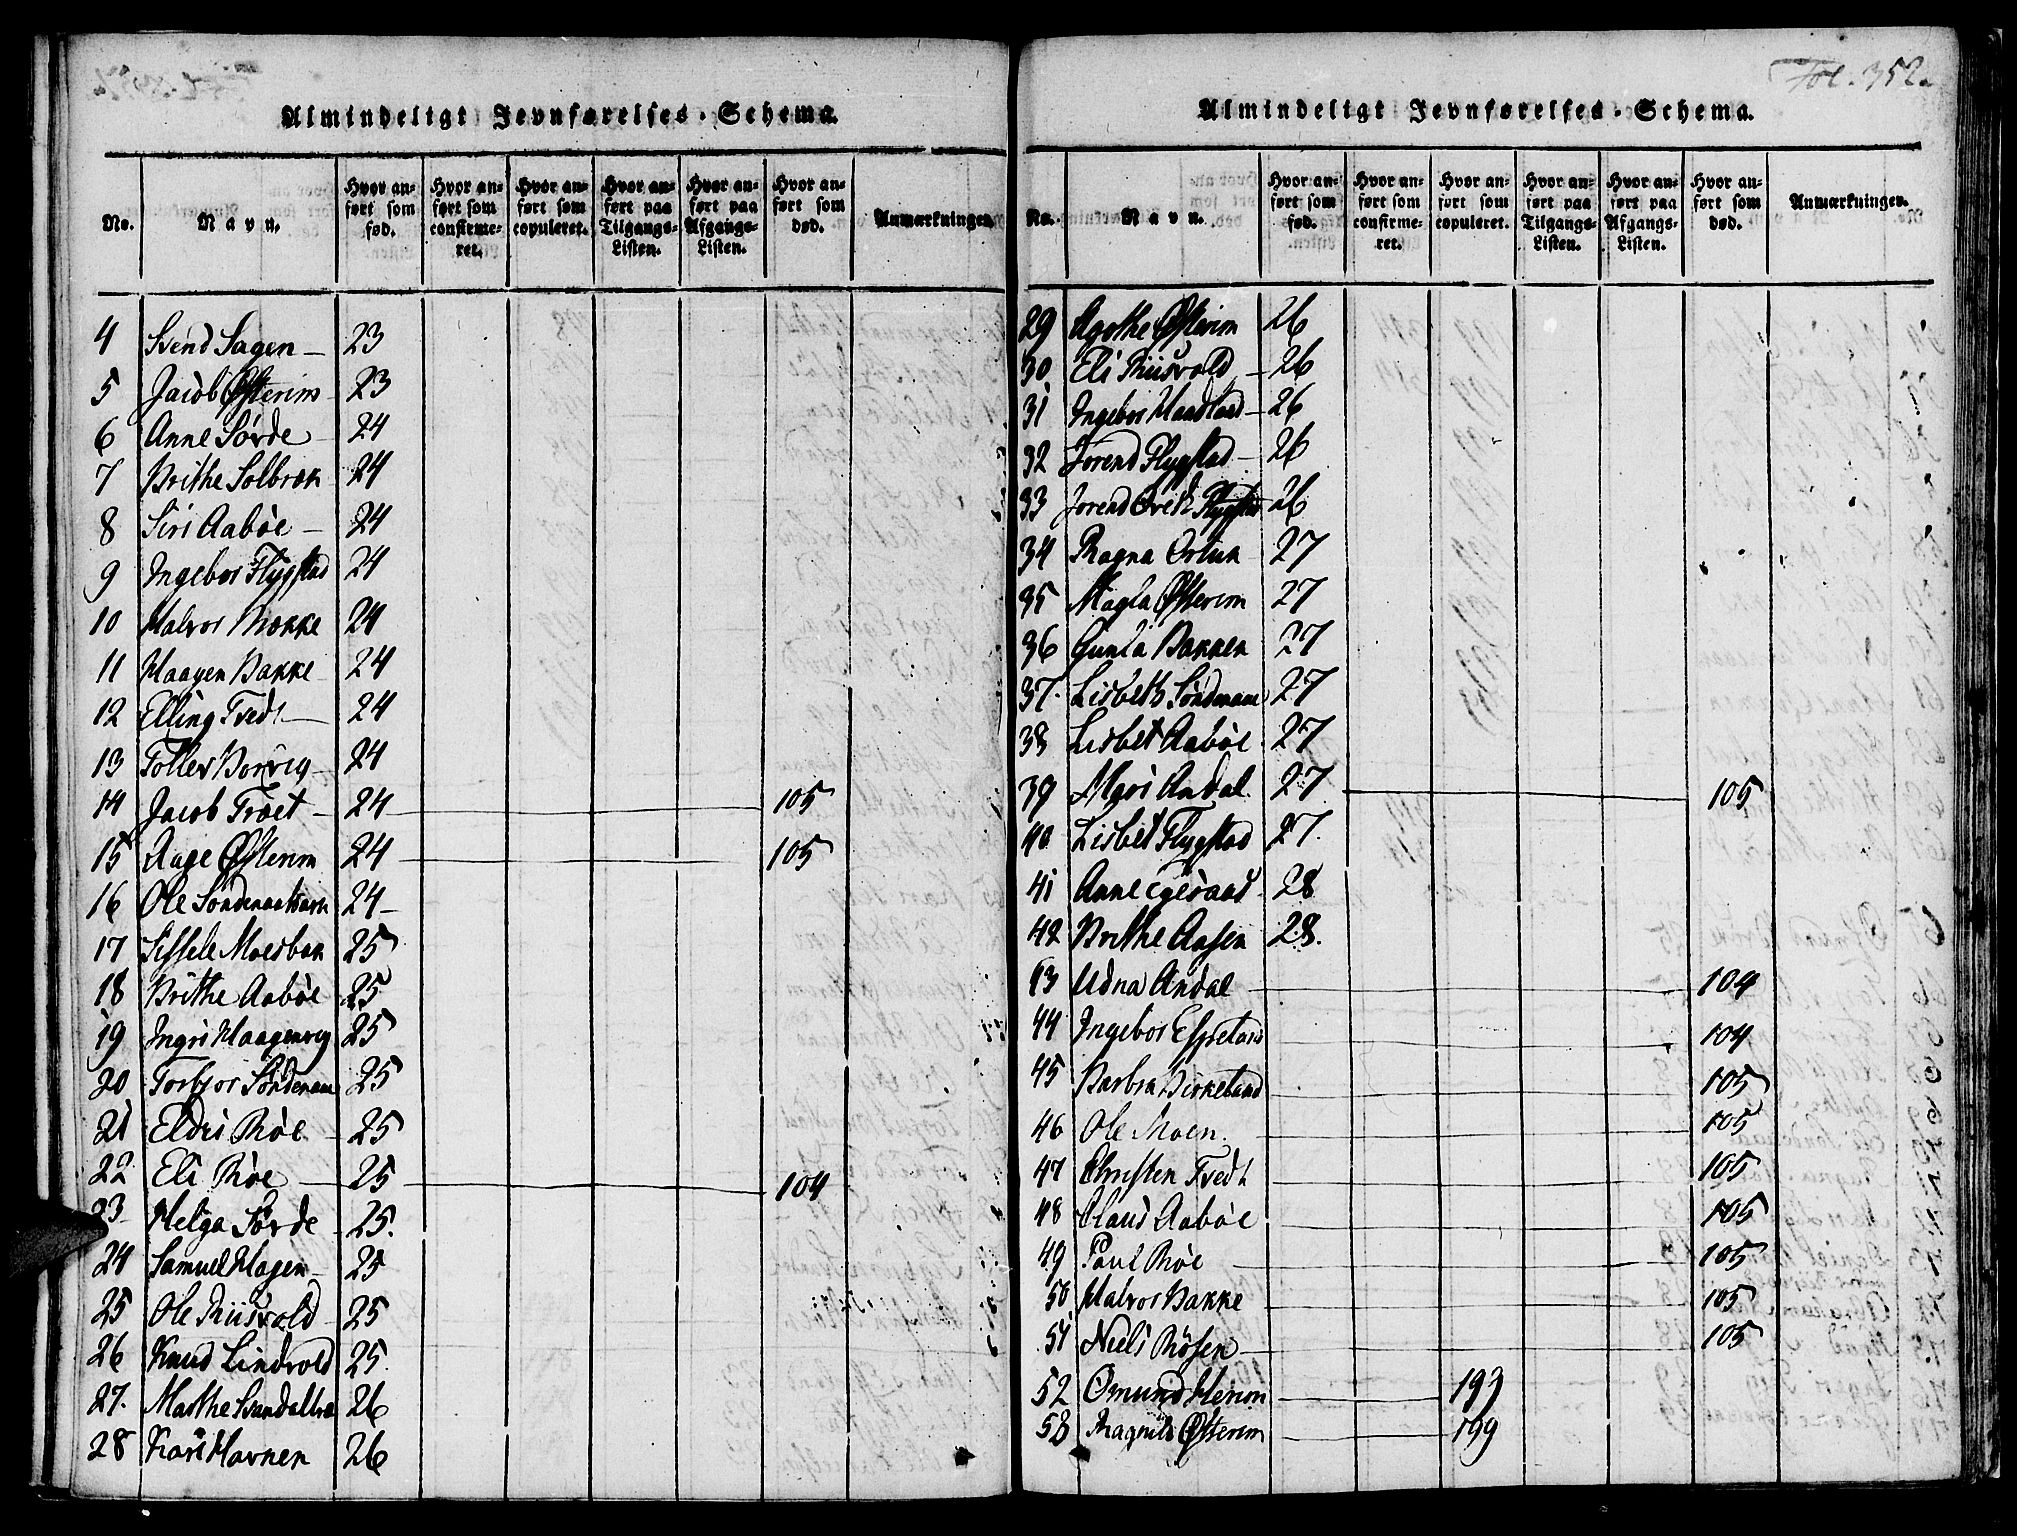 Almindeligt Jevnførelses-Schema.
No. | Navn. | Hvor anført som fød. | Hvor anført som confirmeret. | Hvor anført som copuleret. | Hvor anført paa Tilgangs-Listen. | Hvor anført paa Afgangs-Listen. | Hvor anført som død. | Anmærkninger.
4 Svend Sagen 23
5 Jacob Østerim 23
6 Anne Sørde 24
7 Brithe Solbrek 24
8 Siri Aabøe 24
9 Ingebor Flygstad 24
10 Halvor Brekke 24
11 Haagen Bakke 24
12 Elling Tvedt 24
13 Tollev Borvig 24
14 Jacob Troet 24 105
15 Aage Østerim 24 105
16 Ole 24
17 Sissele Moesbak 25
18 Brithe Aabøe 25
19 Ingri Haagenvig 25
20 Torbjor Søndenaae 25
21 Eldri Røe 25
22 Eli Røe 25 104
23 Helga Sørde 25.
24 Samuel Hagen 25
25 Ole Riisvold 25
26 Knud Lindvold 25.
27. Marthe 26
28 Kari Havnen 26
Fol. 352.
Almindeligt Jevnførelses-Schema.
No. | Navn. | Hvor anført som fød. | Hvor anført som confirmeret. | Hvor anført som copuleret. | Hvor anført paa Tilgangs-Listen. | Hvor anført paa Afgangs-Listen. | Hvor anført som død. | Anmærkninger.
29 Agothe Østerim 26
30 Eli Riisvold 26
31 Ingebor Haadland 26
32 Jorend Flygstad 26
33 Jorend Ørvik Flygstad 26
34 Ragna 27
35 Magla Østerim 27
36 Gunla Bakken 27
37. Lisbeth Søndenaae 27
38 Lisbet Aabøe 27
39 Mari Andal 27 105
40 Lisbet Flygstad 27.
41 Anne Egesaad 28
42 Brithe Aasen 28.
43 Udna Andal 104
44 Ingebor Espeland 104
45 Barbra Birkeland 105
46 Ole Moen. 105
47 Christen Tvedt 105
48 Olaus Aabøe 105
49 Paul Røe 105
50 Halvor Bakke 105
51 Niels Røsen 105
52 Omund Herim 199
53 Magnild Østerim 199